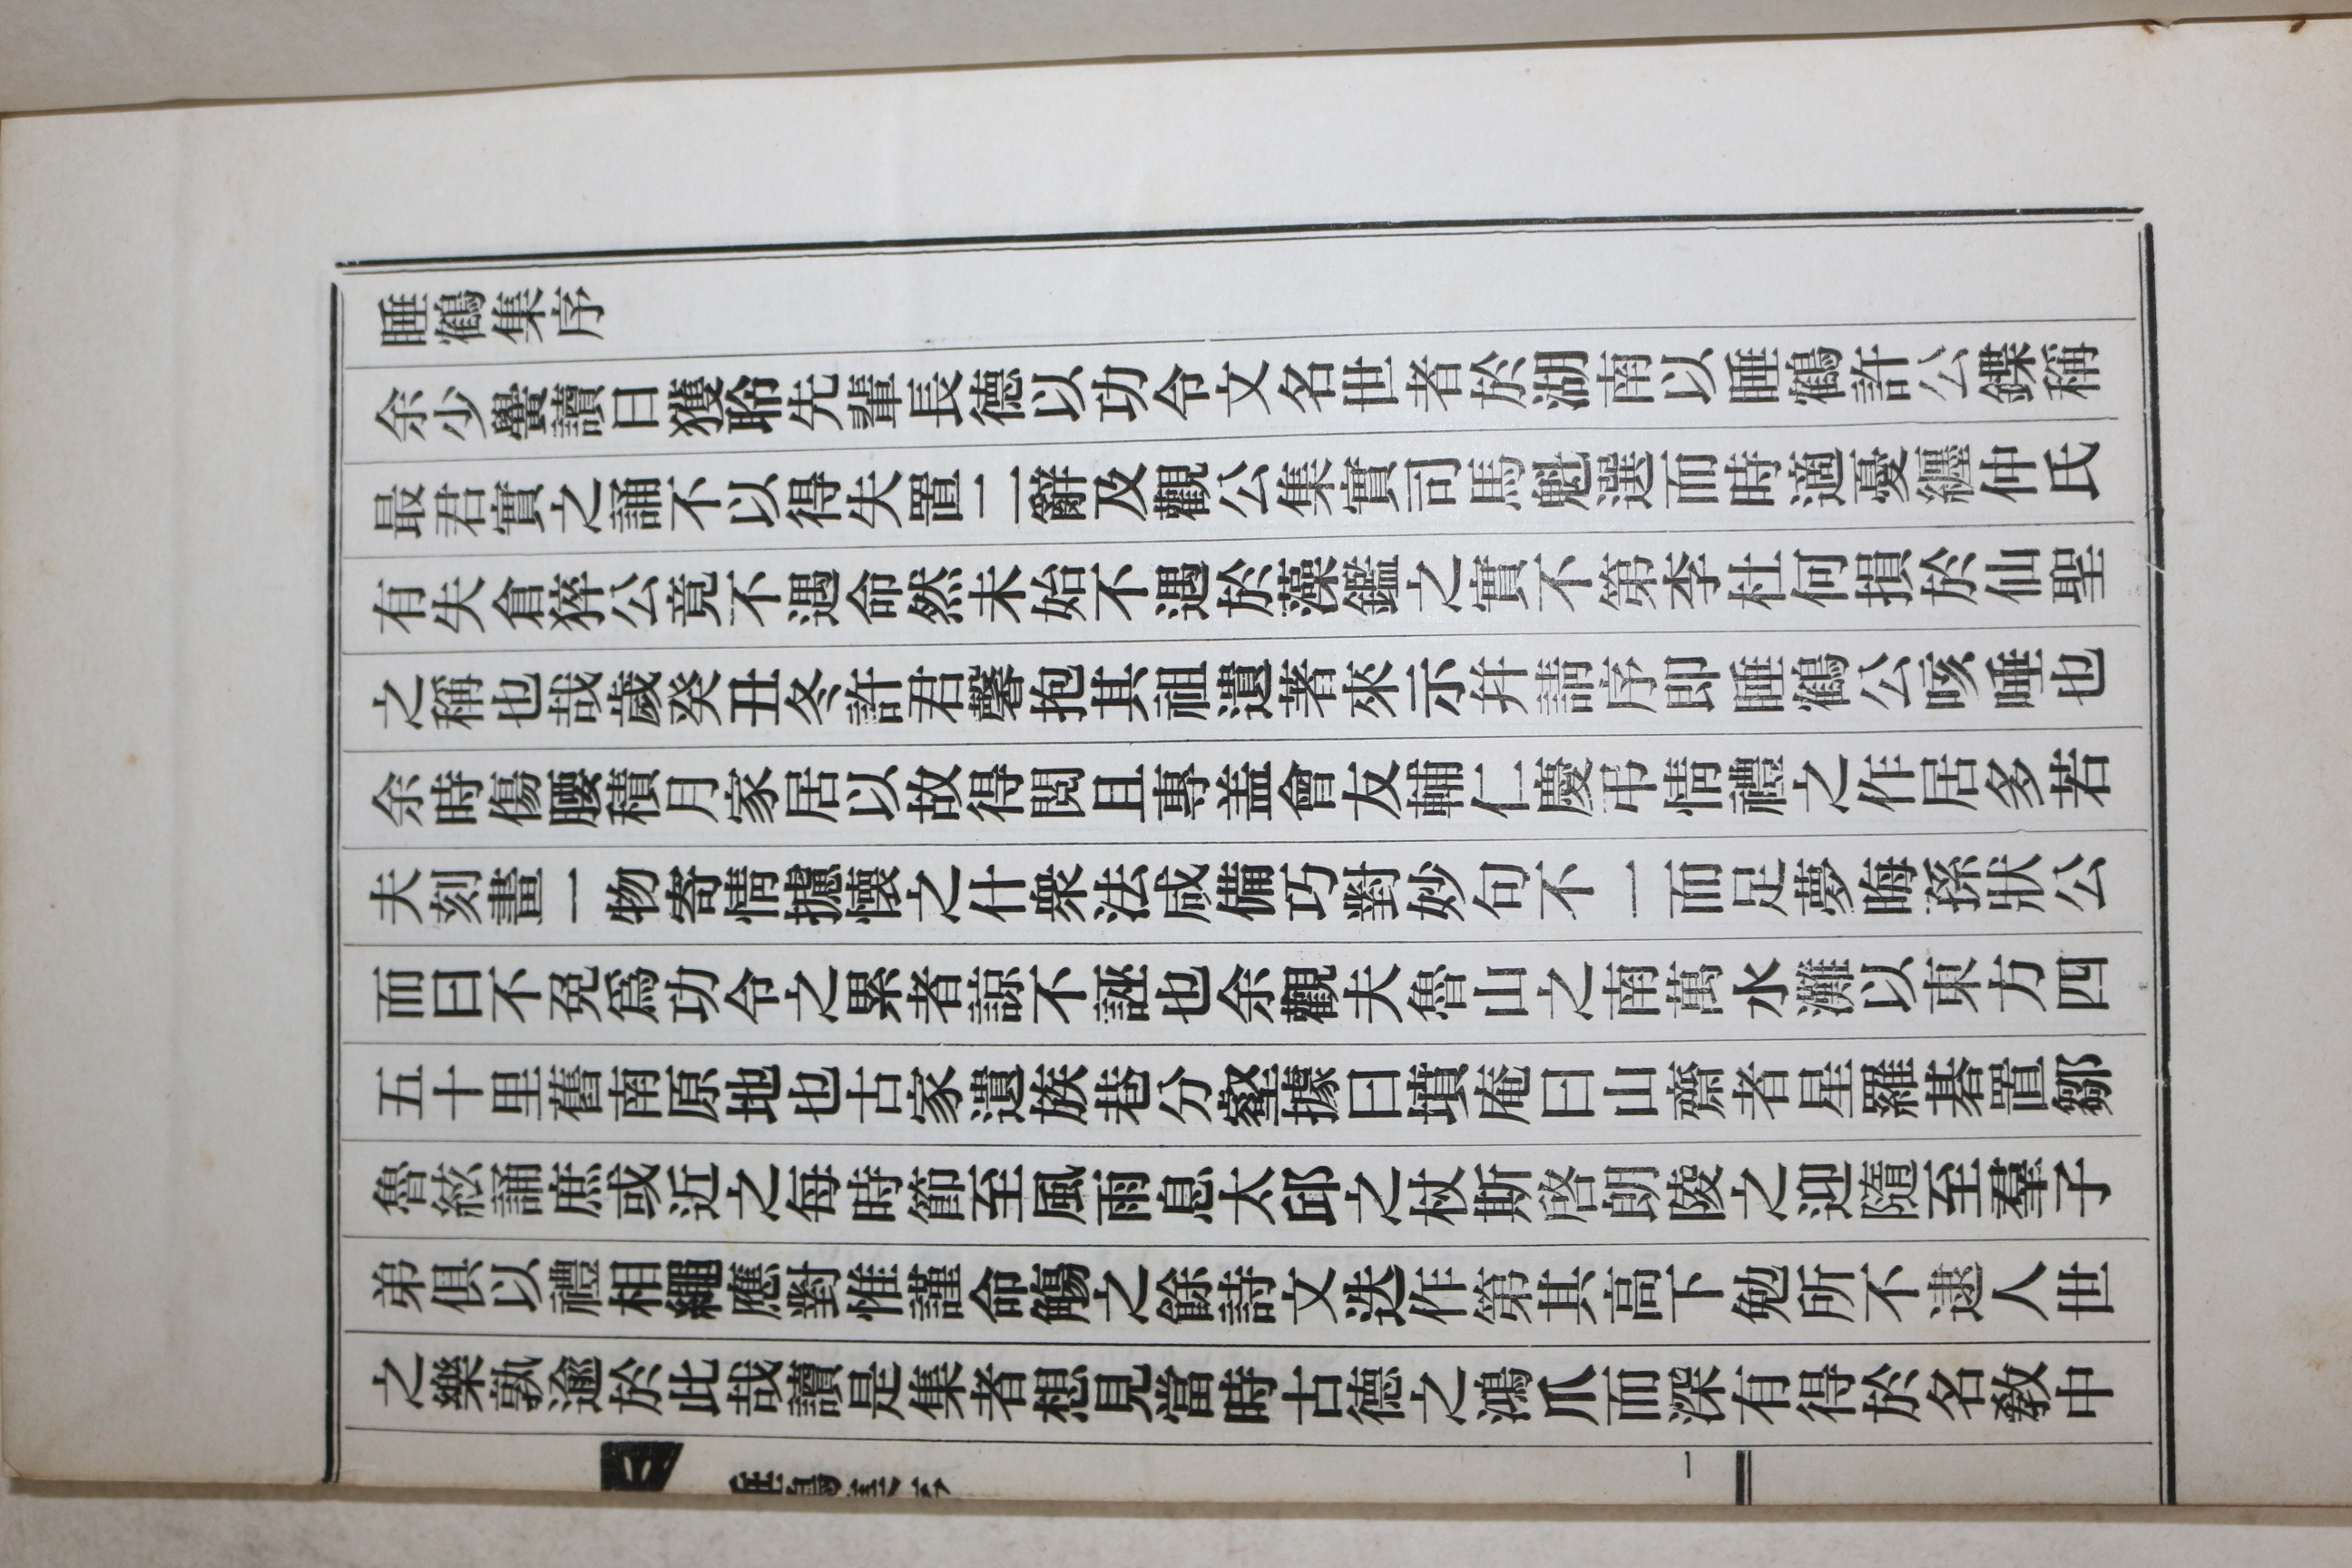 睡鶴集序
余少黌讀日獲聆先輩長德以功令文名世者於湖南以睡鶴許公鏶稱
最君實之誦不以得失置一二辭及觀公集實司馬魁選而時適憂纏仲氏
有失倉猝公竟不遇命然未始不遇於藻鑑之實不第李杜何損於仙聖
之稱也哉歲癸丑冬許君馨抱其祖遺著來示弁請序卽睡鶴公咳唾也
余時傷腰積月家居以故得閱且專盖會友輔仁慶弔情禮之作居多若
夫刻畫一物寄情攄懷之什衆法咸備巧對妙句不一而足夢晦孫狀公
而曰不免爲功令之累者諒不誣也余觀夫魯山之南萬水灘以東方四
五十里舊南原地也古家遺族巷分壑據曰墳庵曰山齋者星羅碁置鄒
魯絃誦庶或近之每時節至風雨息太邱之杖斯啓朗陵之迎隨至羣子
弟俱以禮相繩應對惟謹命觴之餘詩文迭作第其高下勉所不逮人世
之樂孰逾於此哉讀是集者想見當時古德之鴻爪而深有得於名敎中
睡鶴集序
一